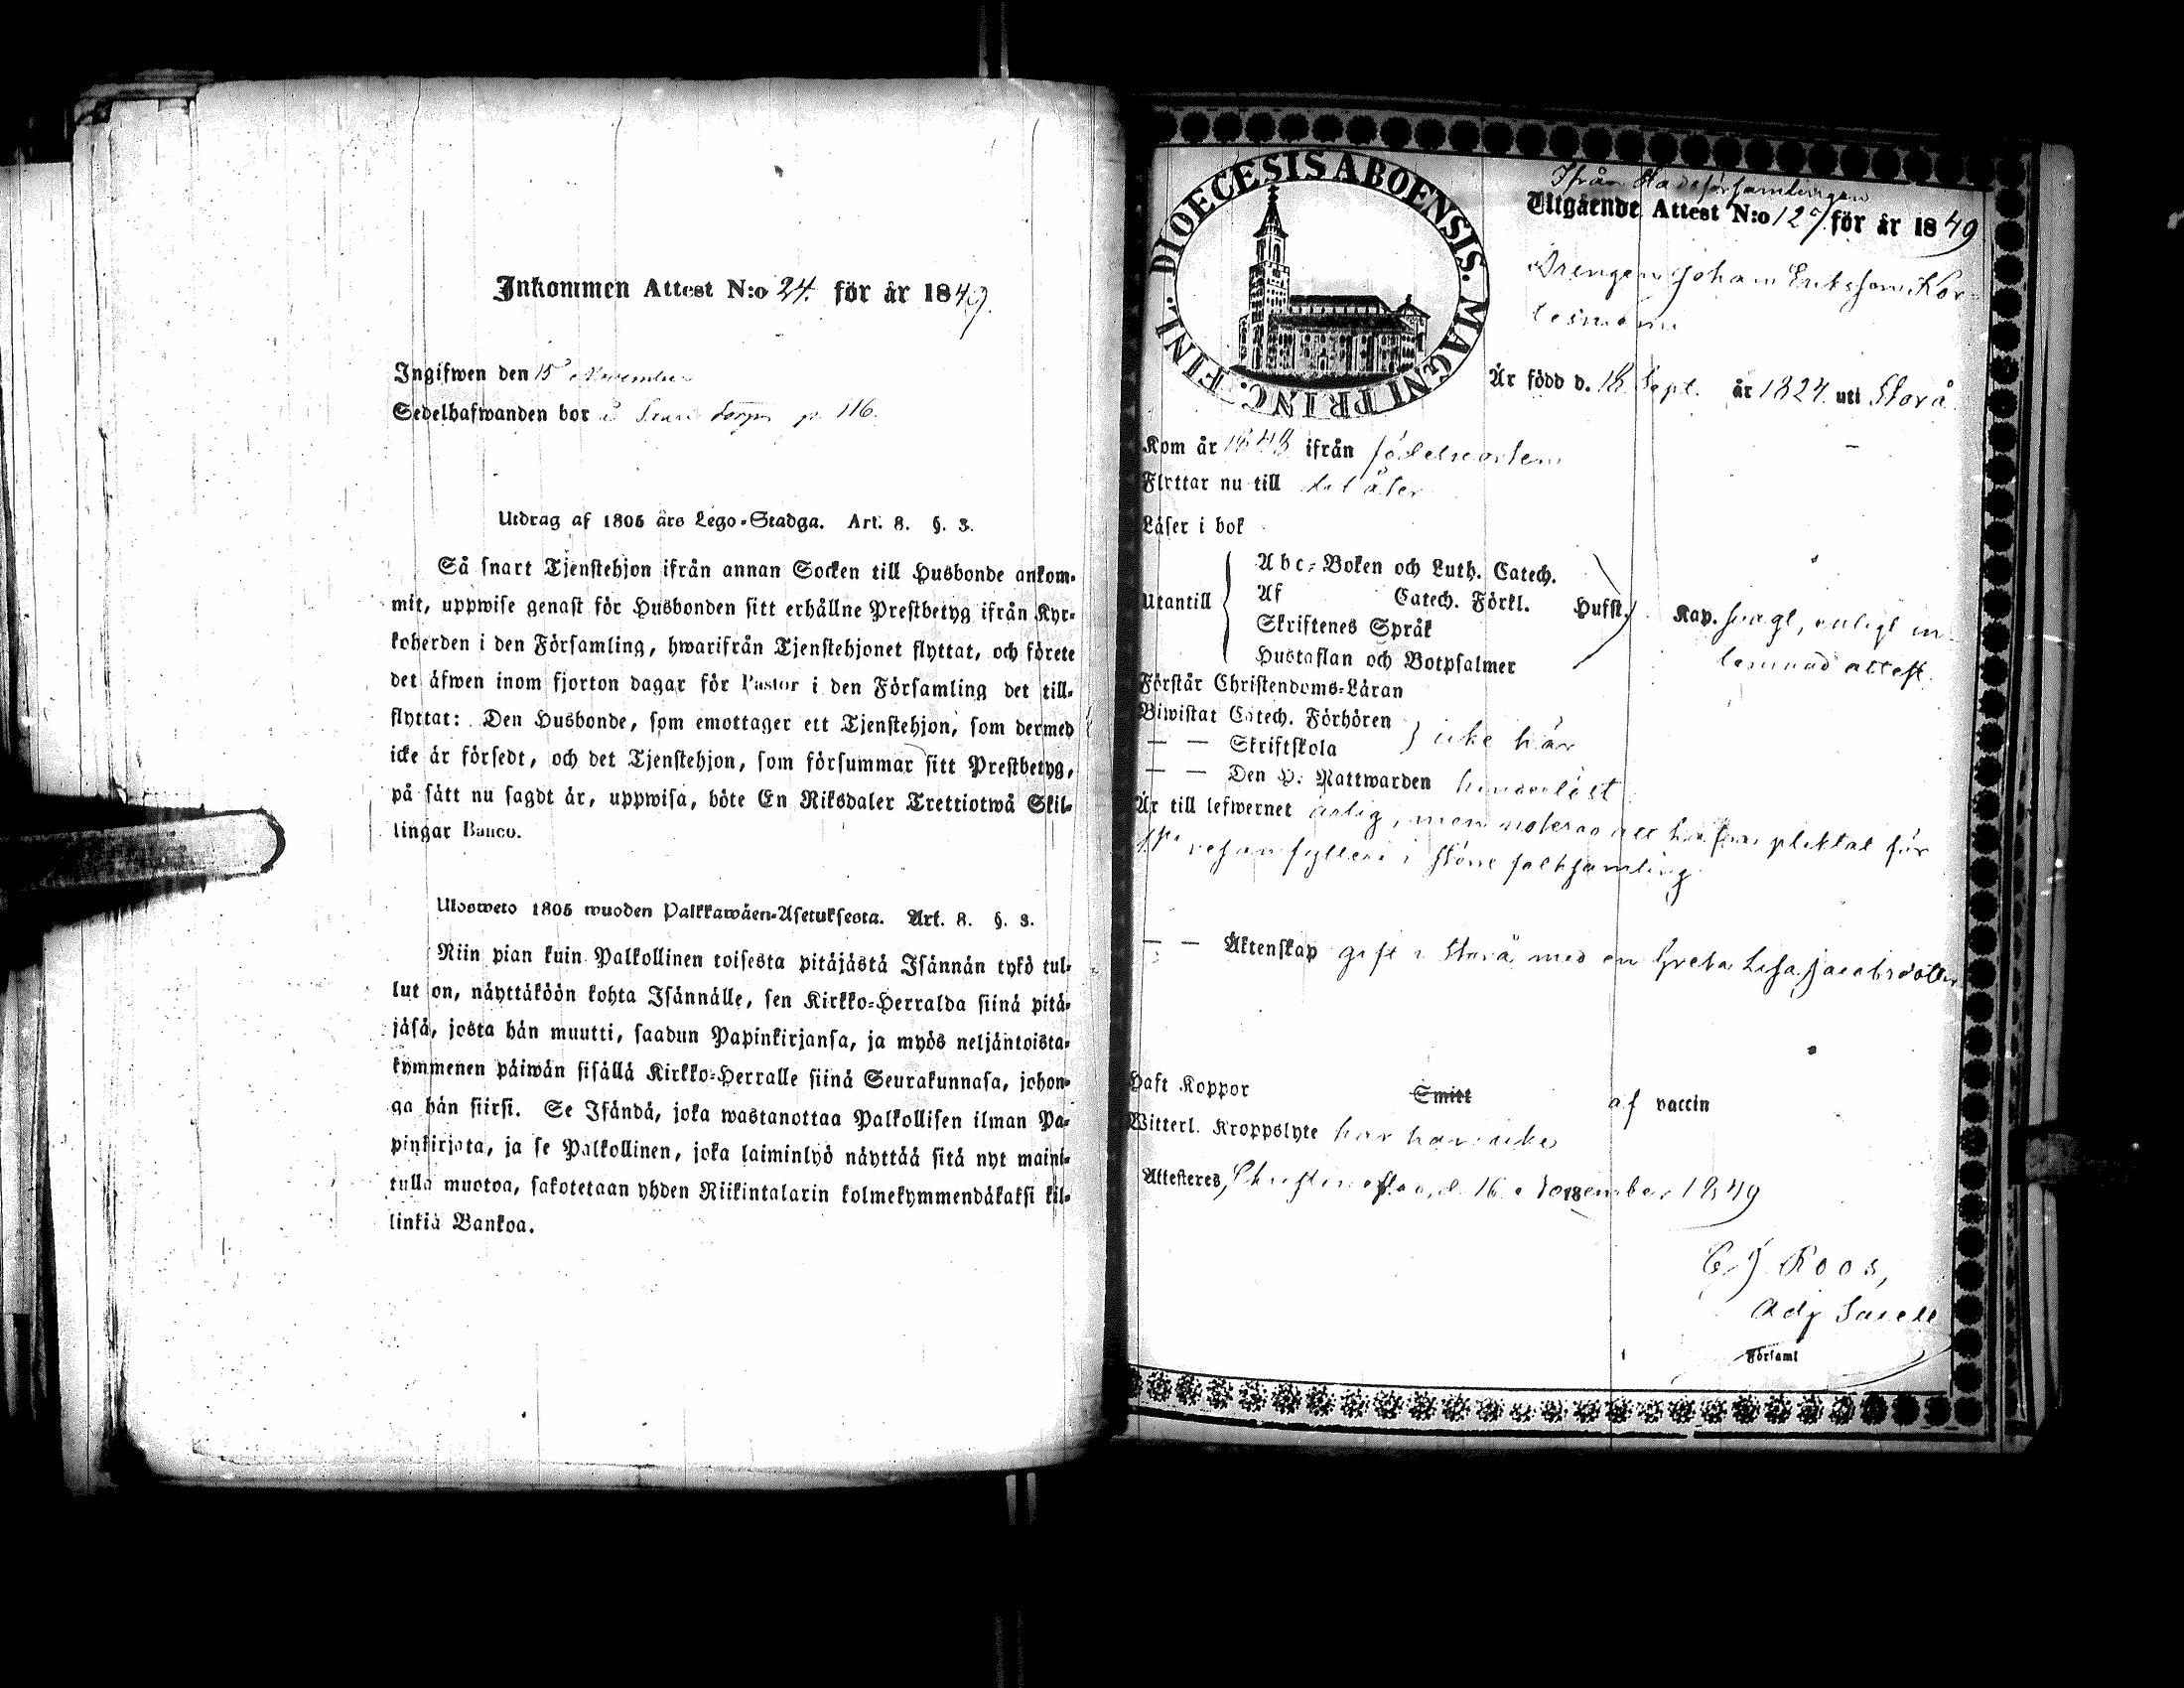 Inkommen Attest N:o 24. för år 1849.
Ingifwen den 15 November
Sedelhafwanden bor å torp p. 116.
Utdrag af 1805 års Lego-Stadga. Art. 8. §. 3.
Så snart Tjenstehjon ifrån annan Socken till Husbonde ankom-
mit, uppwise genast för Husbonden sitt erhållne Prestbetyg ifrån Kyr-
koherden i den Församling, hwarifrån Tjenstehjonet flyttat, och förete
det äfwen inom fjorton dagar för Pastor i den Församling det till-
flyttat: Den Husbonde, som emottager ett Tjenstehjon, som dermed
icke är försedt, och det Tjenstehjon, som försummar sitt Prestbetyg,
på sätt nu sagdt är, uppwisa, böte En Riksdaler Trettiotwå Skil-
lingar Banco.
Ulosweto 1805 wuoden Palkkawäen-Asetuksesta. Art. 8. §. 3.
Niin pian kuin Palkollinen toisesta pitäjästä Isännän tykö tul-
lut on, näyttäköön kohta Isännälle, sen Kirkko-Herralda siinä pitä-
jäsä, josta hän muutti, saadun Papinkirjansa, ja myös neljäntoista-
kymmenen päiwän sisällä Kirkko-Herralle siinä Seurakunnasa, johon-
ga hän siirsi. Se Isändä, joka wastanottaa Palkollisen ilman Pa-
pinkirjata, ja se Palkollinen, joka laiminlyö näyttää sitä nyt maini-
tulla muotoa, sakotetaan yhden Riikintalarin kolmekymmendäkaksi kil-
linkiä Bankoa.
DIOECESIS ABOENSIS. MAGNI PRINC. FINL.
Ifrån Stadsförsamlingen
Utgående Attest N:o 127 för år 1849
Drengen Johan Eriksson Kor-
tesniemi
Är född d. 18 Sept. år 1824 uti Storå
Kom år 1848 ifrån födelseorten
Flyttar nu till dit åter
Läser i bok
Utantill
Abc-Boken och Luth. Catech.
Af Catech. Förkl. Hufst. Kap. svagt, enligt in-
Skriftenes Språk
lemnad attest.
Hustaflan och Botpsalmer
Förstår Christendoms-Läran
Biwistat Catech. Förhören
— — Skriftskola icke här
— — Den H. Nattwarden hinderlöst
Är till lefwernet ärlig, men noteras att han pliktat för
resan fylleri i större folksamling
— — Äktenskap gift i Storå med en Greta Lisa Jacobsdotter
Haft Koppor Smitt af vaccin
Witterl. Kroppslyte har han icke
Attesteres, Christinestad, d. 16 November 1849
C J Roos,
Adj Sacell
Församl